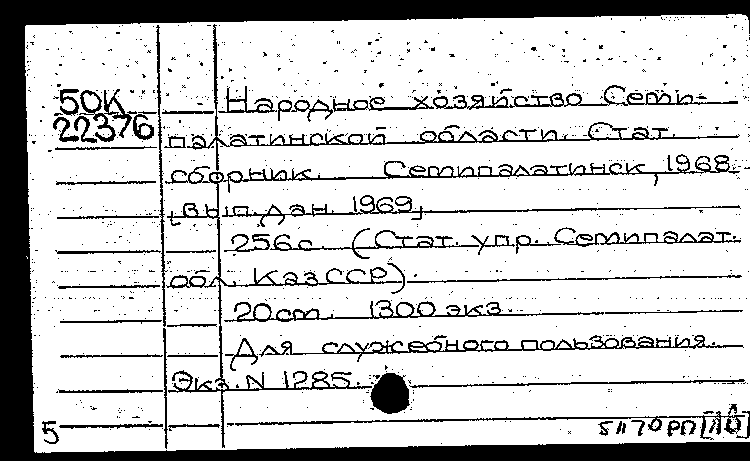 50К
22376
Народное хозяйство Семи-
палатинской области. Стат.
сборник. Семипалатинск, 1968
[вып. дан. 1969]
256с. (Стат. упр. Семипалат.
обл. КазССР).
20см. 1300 экз.
Для служебного пользования.
Экз. N 1285.
5